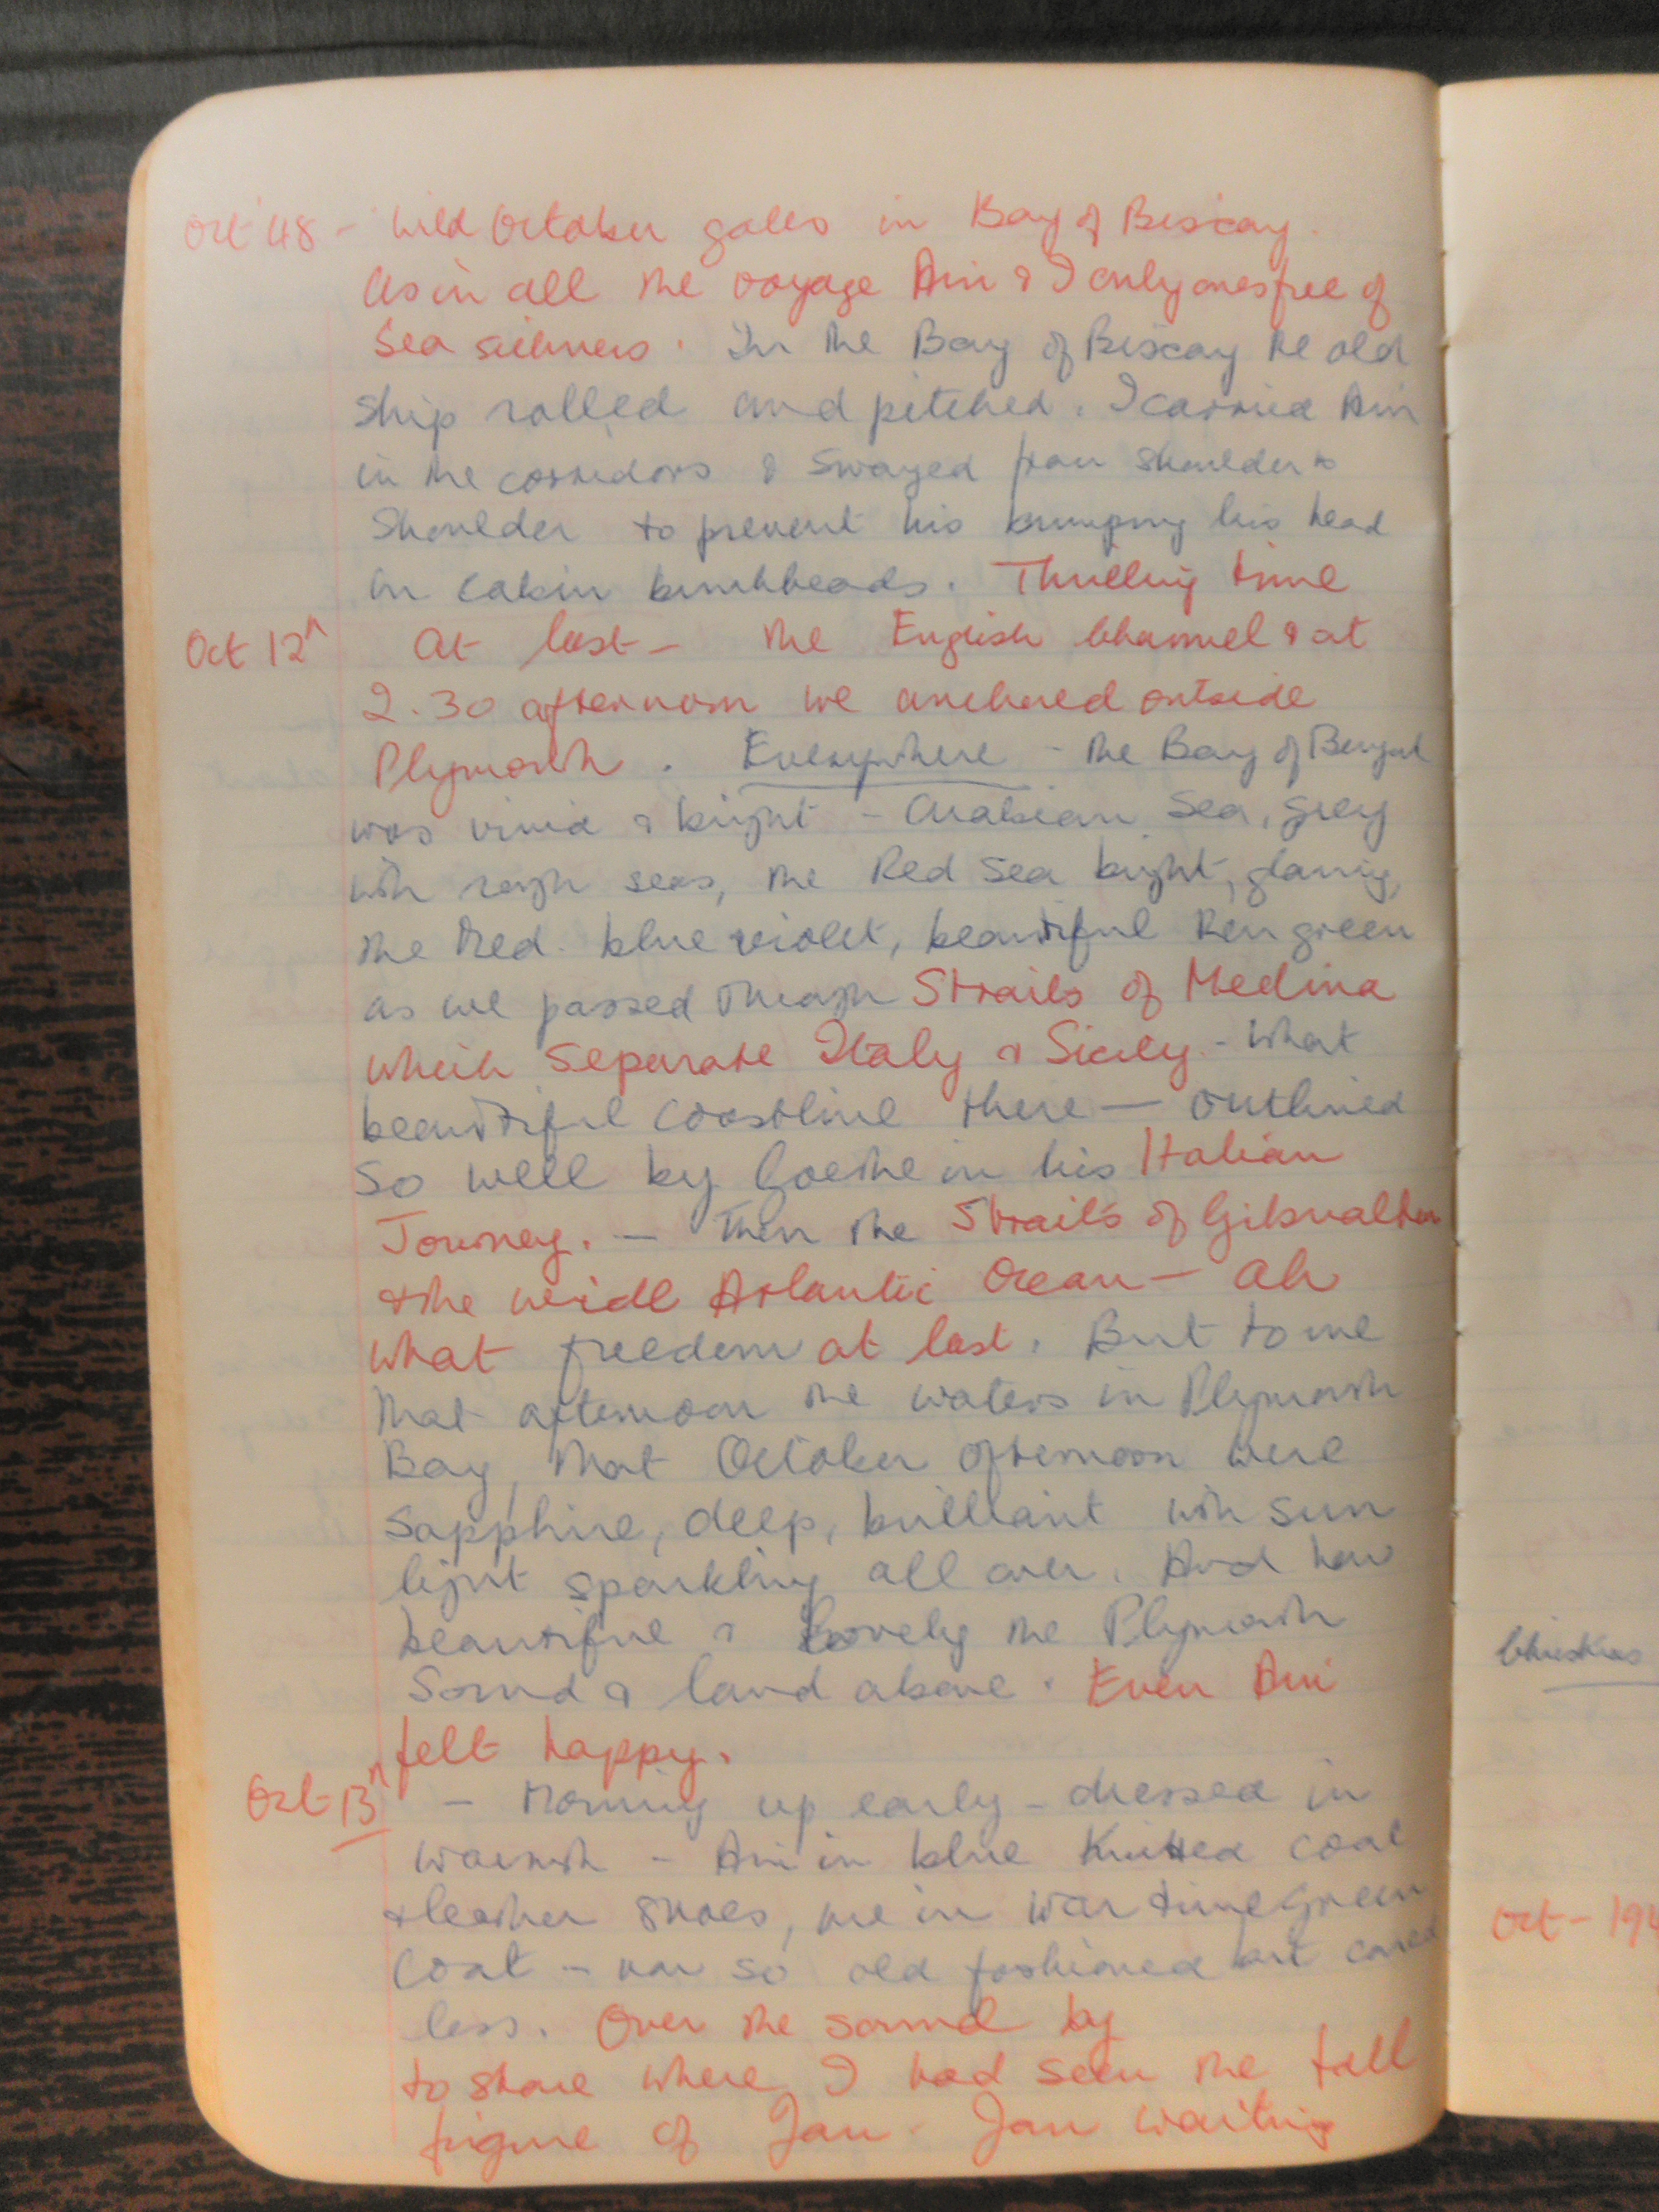 Oct '48 - Wild October gales in Bay of Biscay.
As in all the voyage Ami & I only ones free of
Sea sickness. In the Bay of Biscay the old
ship rolled and pitched. I carried Ami
in the corridors & swayed from shoulder to
shoulder to prevent his bumping his head
in cabin bunkheads. Thrilling time
Oct 12th At last - the English Channel & at
2.30 afternoon we anchored outside
Plymouth. Everywhere - the Bay of Bengal
was vivid & bright - Arabian Sea, grey
with rough seas, the Red Sea bright, glaring,
the Med. blue violet, beautiful then green
as we passed through Straits of Medina
which separate Italy & Sicily - What
beautiful coastline there — outlined
so well by Goethe in his Italian
Journey. — Then the Straits of Gibraltar
& the wide Atlantic Ocean — Ah
what freedom at last. But to me
that afternoon the waters in Plymouth
Bay, that October afternoon were
sapphire, deep, brilliant with sun
light sparkling all over. And how
beautiful & lovely the Plymouth
Sound & land above. Even Ami
felt happy.
Oct 13th - Morning up early - dressed in
warmth - Ami in blue knitted coat
& leather shoes, me in war time green
coat - now so old fashioned but cared
less. Over the sound by
to shore where I had seen the tall
figure of Jan - Jan waiting
Oct - 194